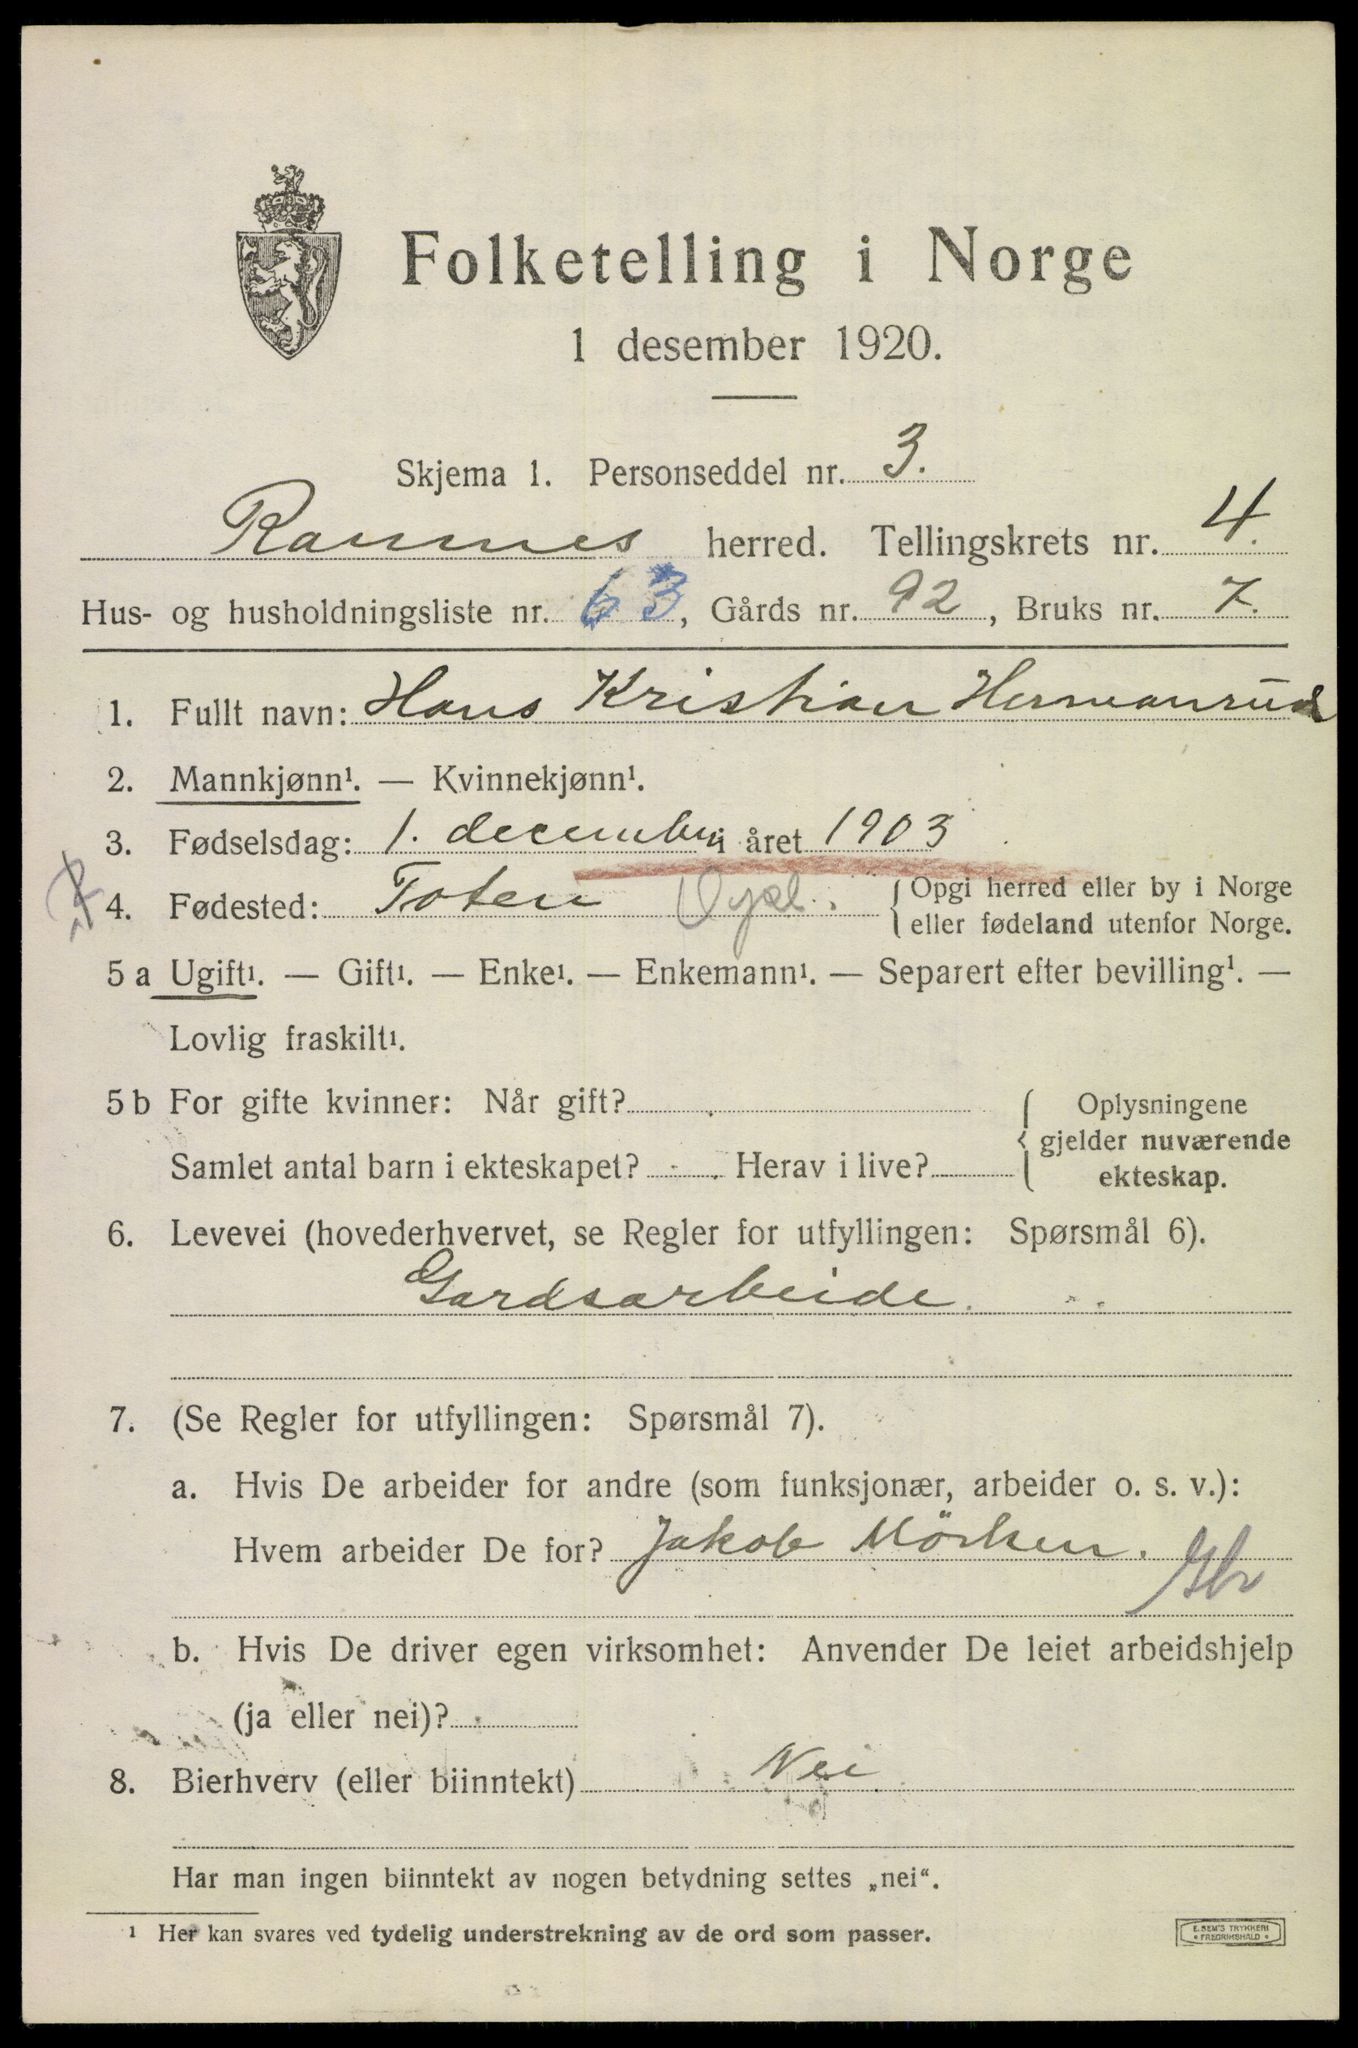 Folketelling i Norge
1 desember 1920.
Skjema 1. Personseddel nr. 3.
Ramnes herred. Tellingskrets nr. 4.
Hus- og husholdningsliste nr. 63, Gårds nr. 92, Bruks nr. 7.
1. Fullt navn: Hans Kristian Hermanrud
2. Mannkjønn¹. — Kvinnekjønn¹.
3. Fødselsdag: 1. december i året 1903
4. Fødested: Toten { Opgi herred eller by i Norge
eller fødeland utenfor Norge.
5 a Ugift¹. — Gift¹. — Enke¹. — Enkemann¹. — Separert efter bevilling¹. —
Lovlig fraskilt¹.
5 b For gifte kvinner: Når gift? { Oplysningene
gjelder nuværende
Samlet antal barn i ekteskapet? Herav i live?
ekteskap.
6. Levevei (hovederhvervet, se Regler for utfyllingen: Spørsmål 6).
Gardsarbeide.
7. (Se Regler for utfyllingen: Spørsmål 7).
a. Hvis De arbeider for andre (som funksjonær, arbeider o. s. v.):
Hvem arbeider De for? Jakob Mörken.
b. Hvis De driver egen virksomhet: Anvender De leiet arbeidshjelp
(ja eller nei)?
8. Bierhverv (eller biinntekt) Nei
Har man ingen biinntekt av nogen betydning settes „nei“.
¹ Her kan svares ved tydelig understrekning av de ord som passer.
E. SEM'S TRYKKERI
• FREDRIKSHALD •